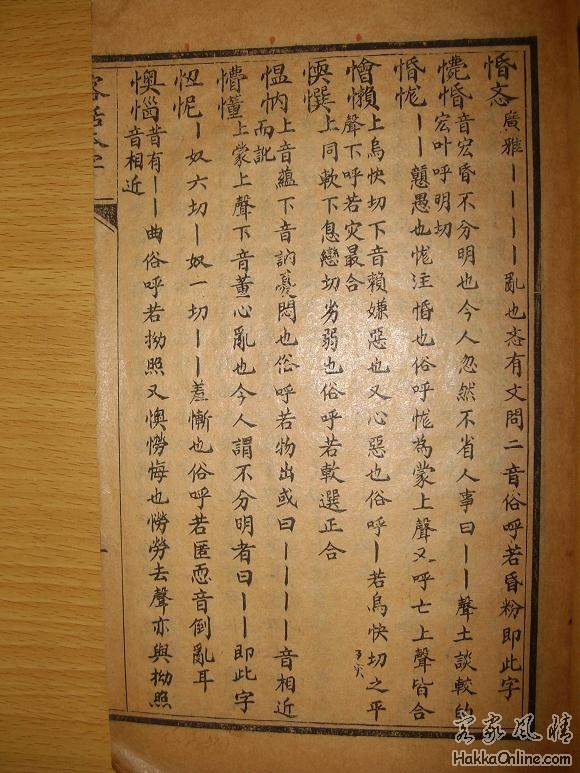 惛忞廣雅丨丨丨丨亂也忞有文問二音俗呼若昏粉即此字
惛音宏昏不分明也今人忽然不省人事曰丨丨聲土談較的
宏叶呼明切
惛怩丨丨戇愚也怩注惛也俗呼怩為蒙上聲又呼亡上聲皆合
懀懶上烏快切下音賴嫌惡也又心惡也俗呼丨若烏快切之平
聲下呼若灾最合
愞㦏上同軟下息戀切劣弱也俗呼若軟選正合
愠㕯上音蘊下音訥憂悶也俗呼若物出或曰丨丨丨丨音相近
而訛
懵懂上蒙上聲下音董心亂也今人謂不分明者曰丨丨即此字
忸怩丨奴六切丨奴一切丨丨羞慚也俗呼若匿恧音倒亂耳
懊惱昔有丨丨曲俗呼若拗照又懊憦悔也憦勞去聲亦與拗照
音相近
客家風情
HakkaOnline.com